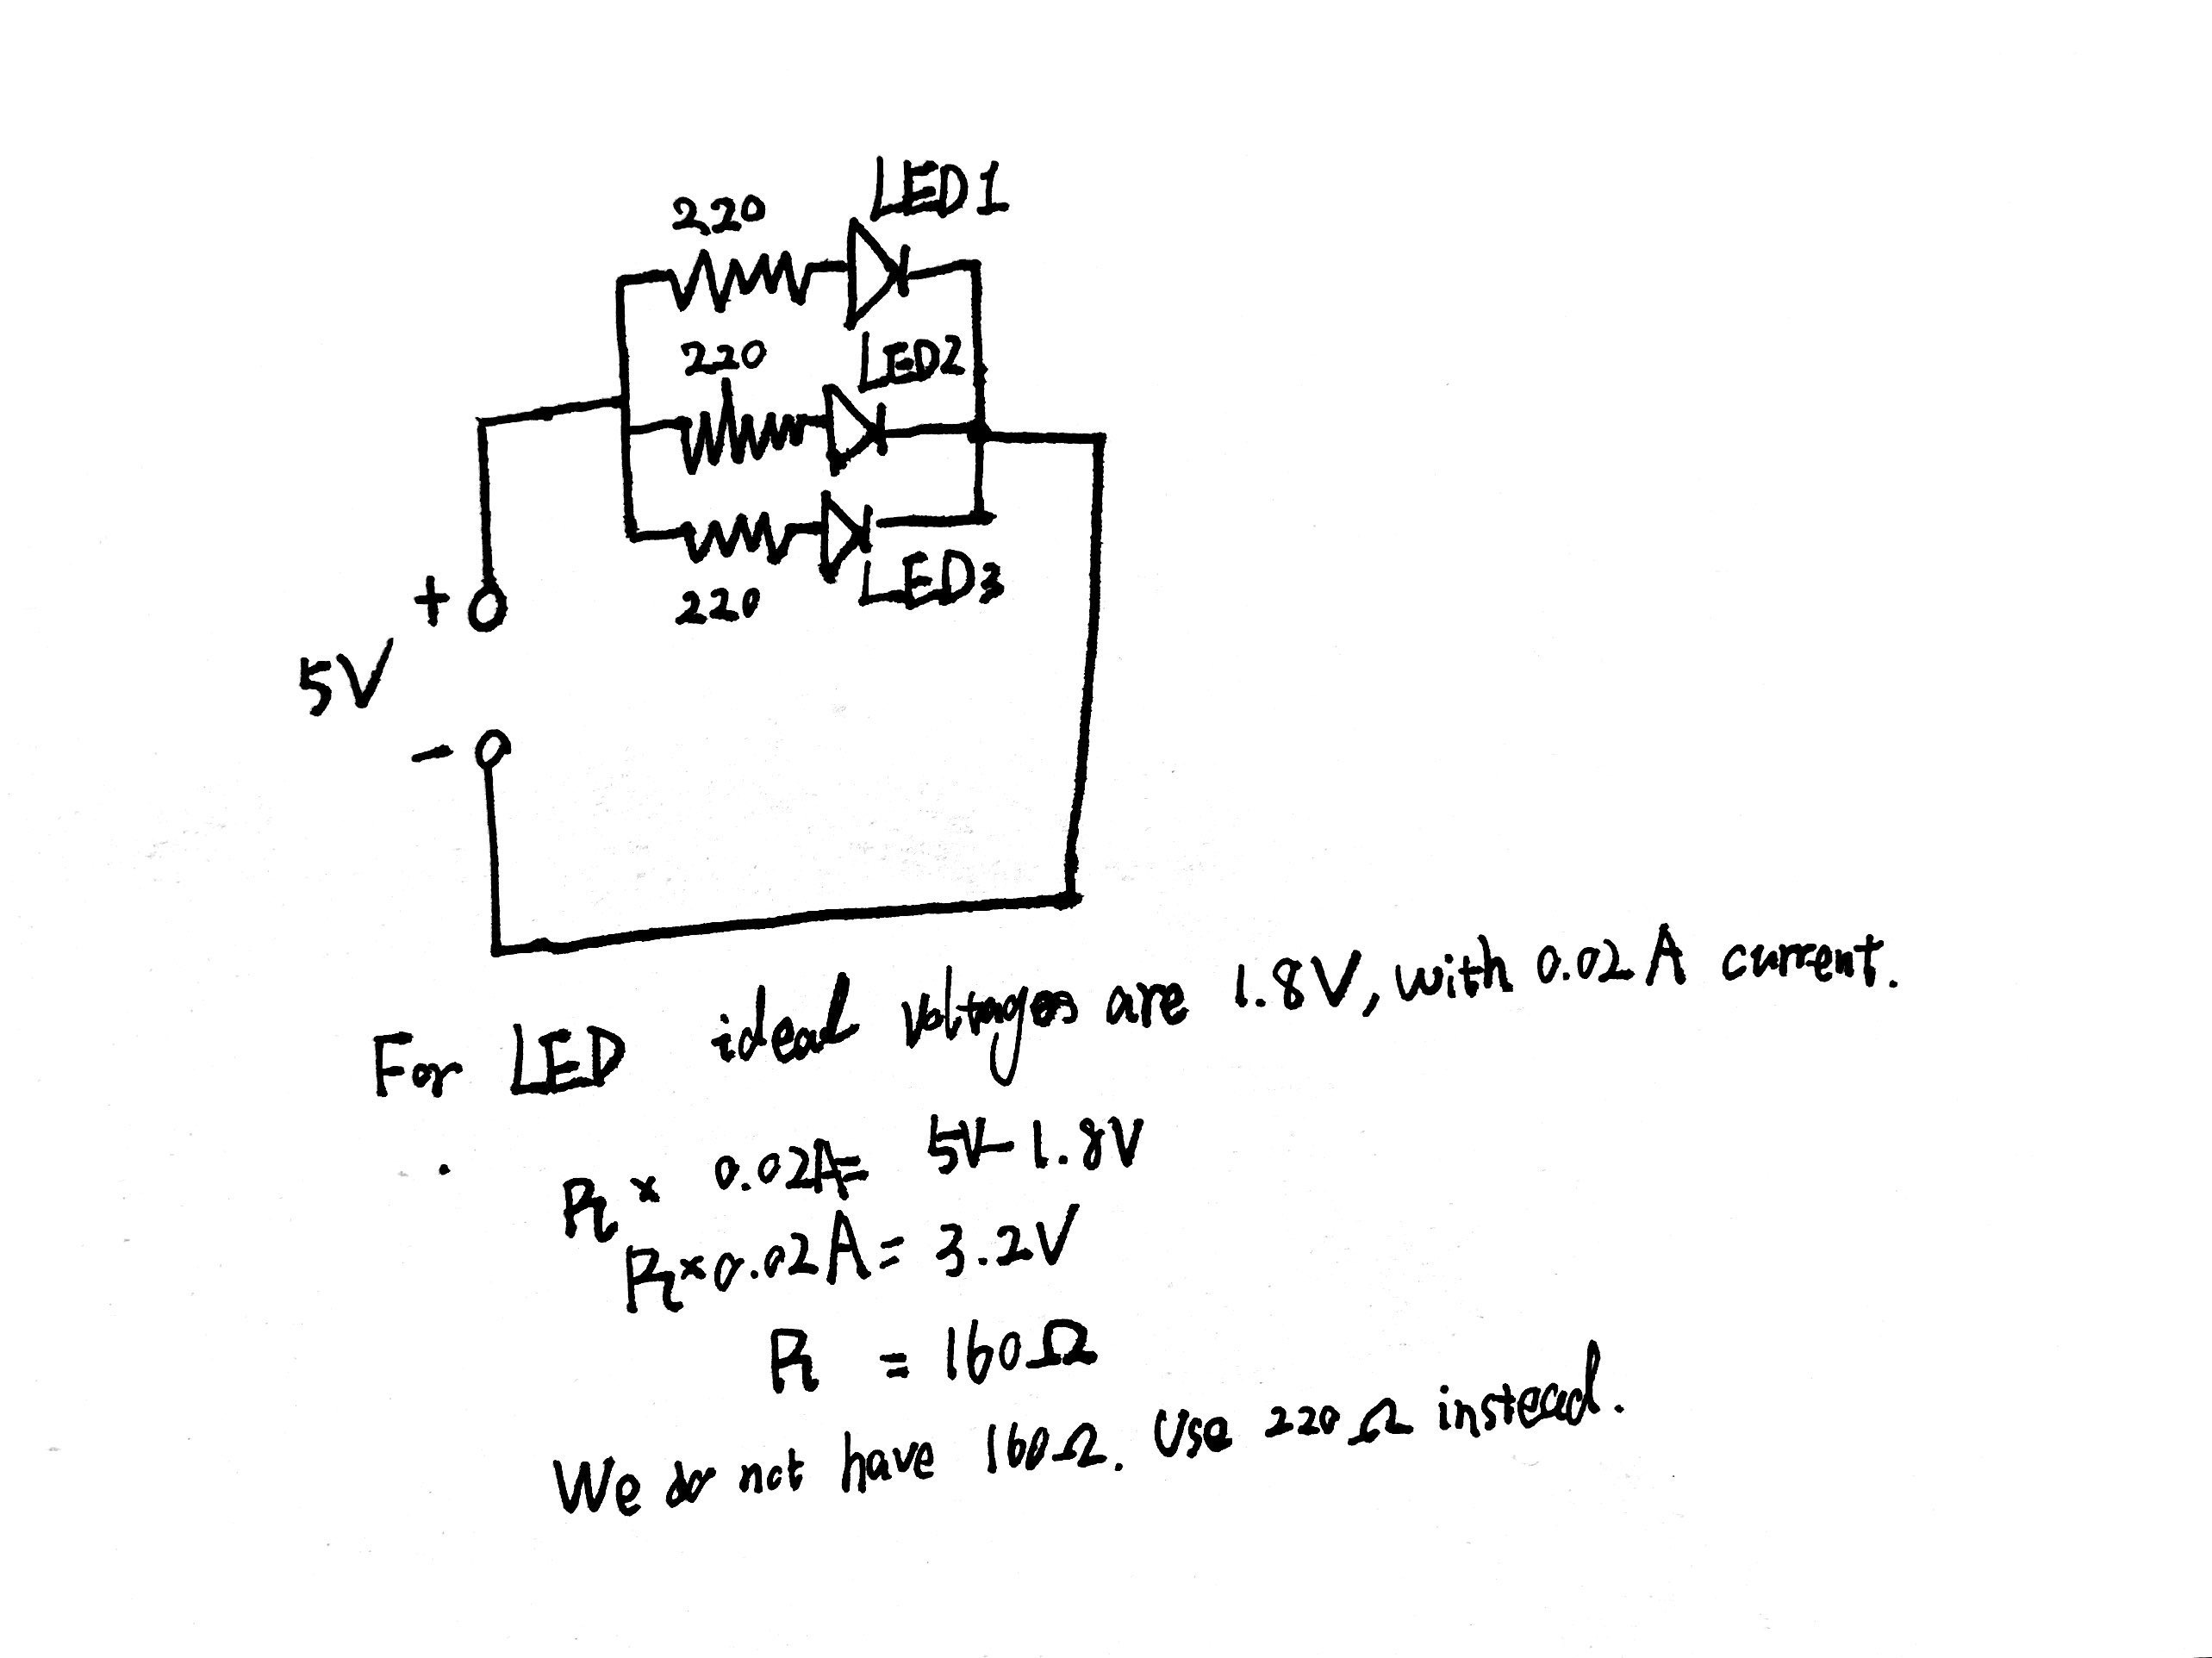 LED1
220
LED2
220
LED3
220
+
5V
-
For LED ideal voltages are 1.8V, with 0.02A current.
R × 0.02A = 5V-1.8V
R×0.02A = 3.2V
R = 160Ω
We do not have 160Ω. Use 220Ω instead.